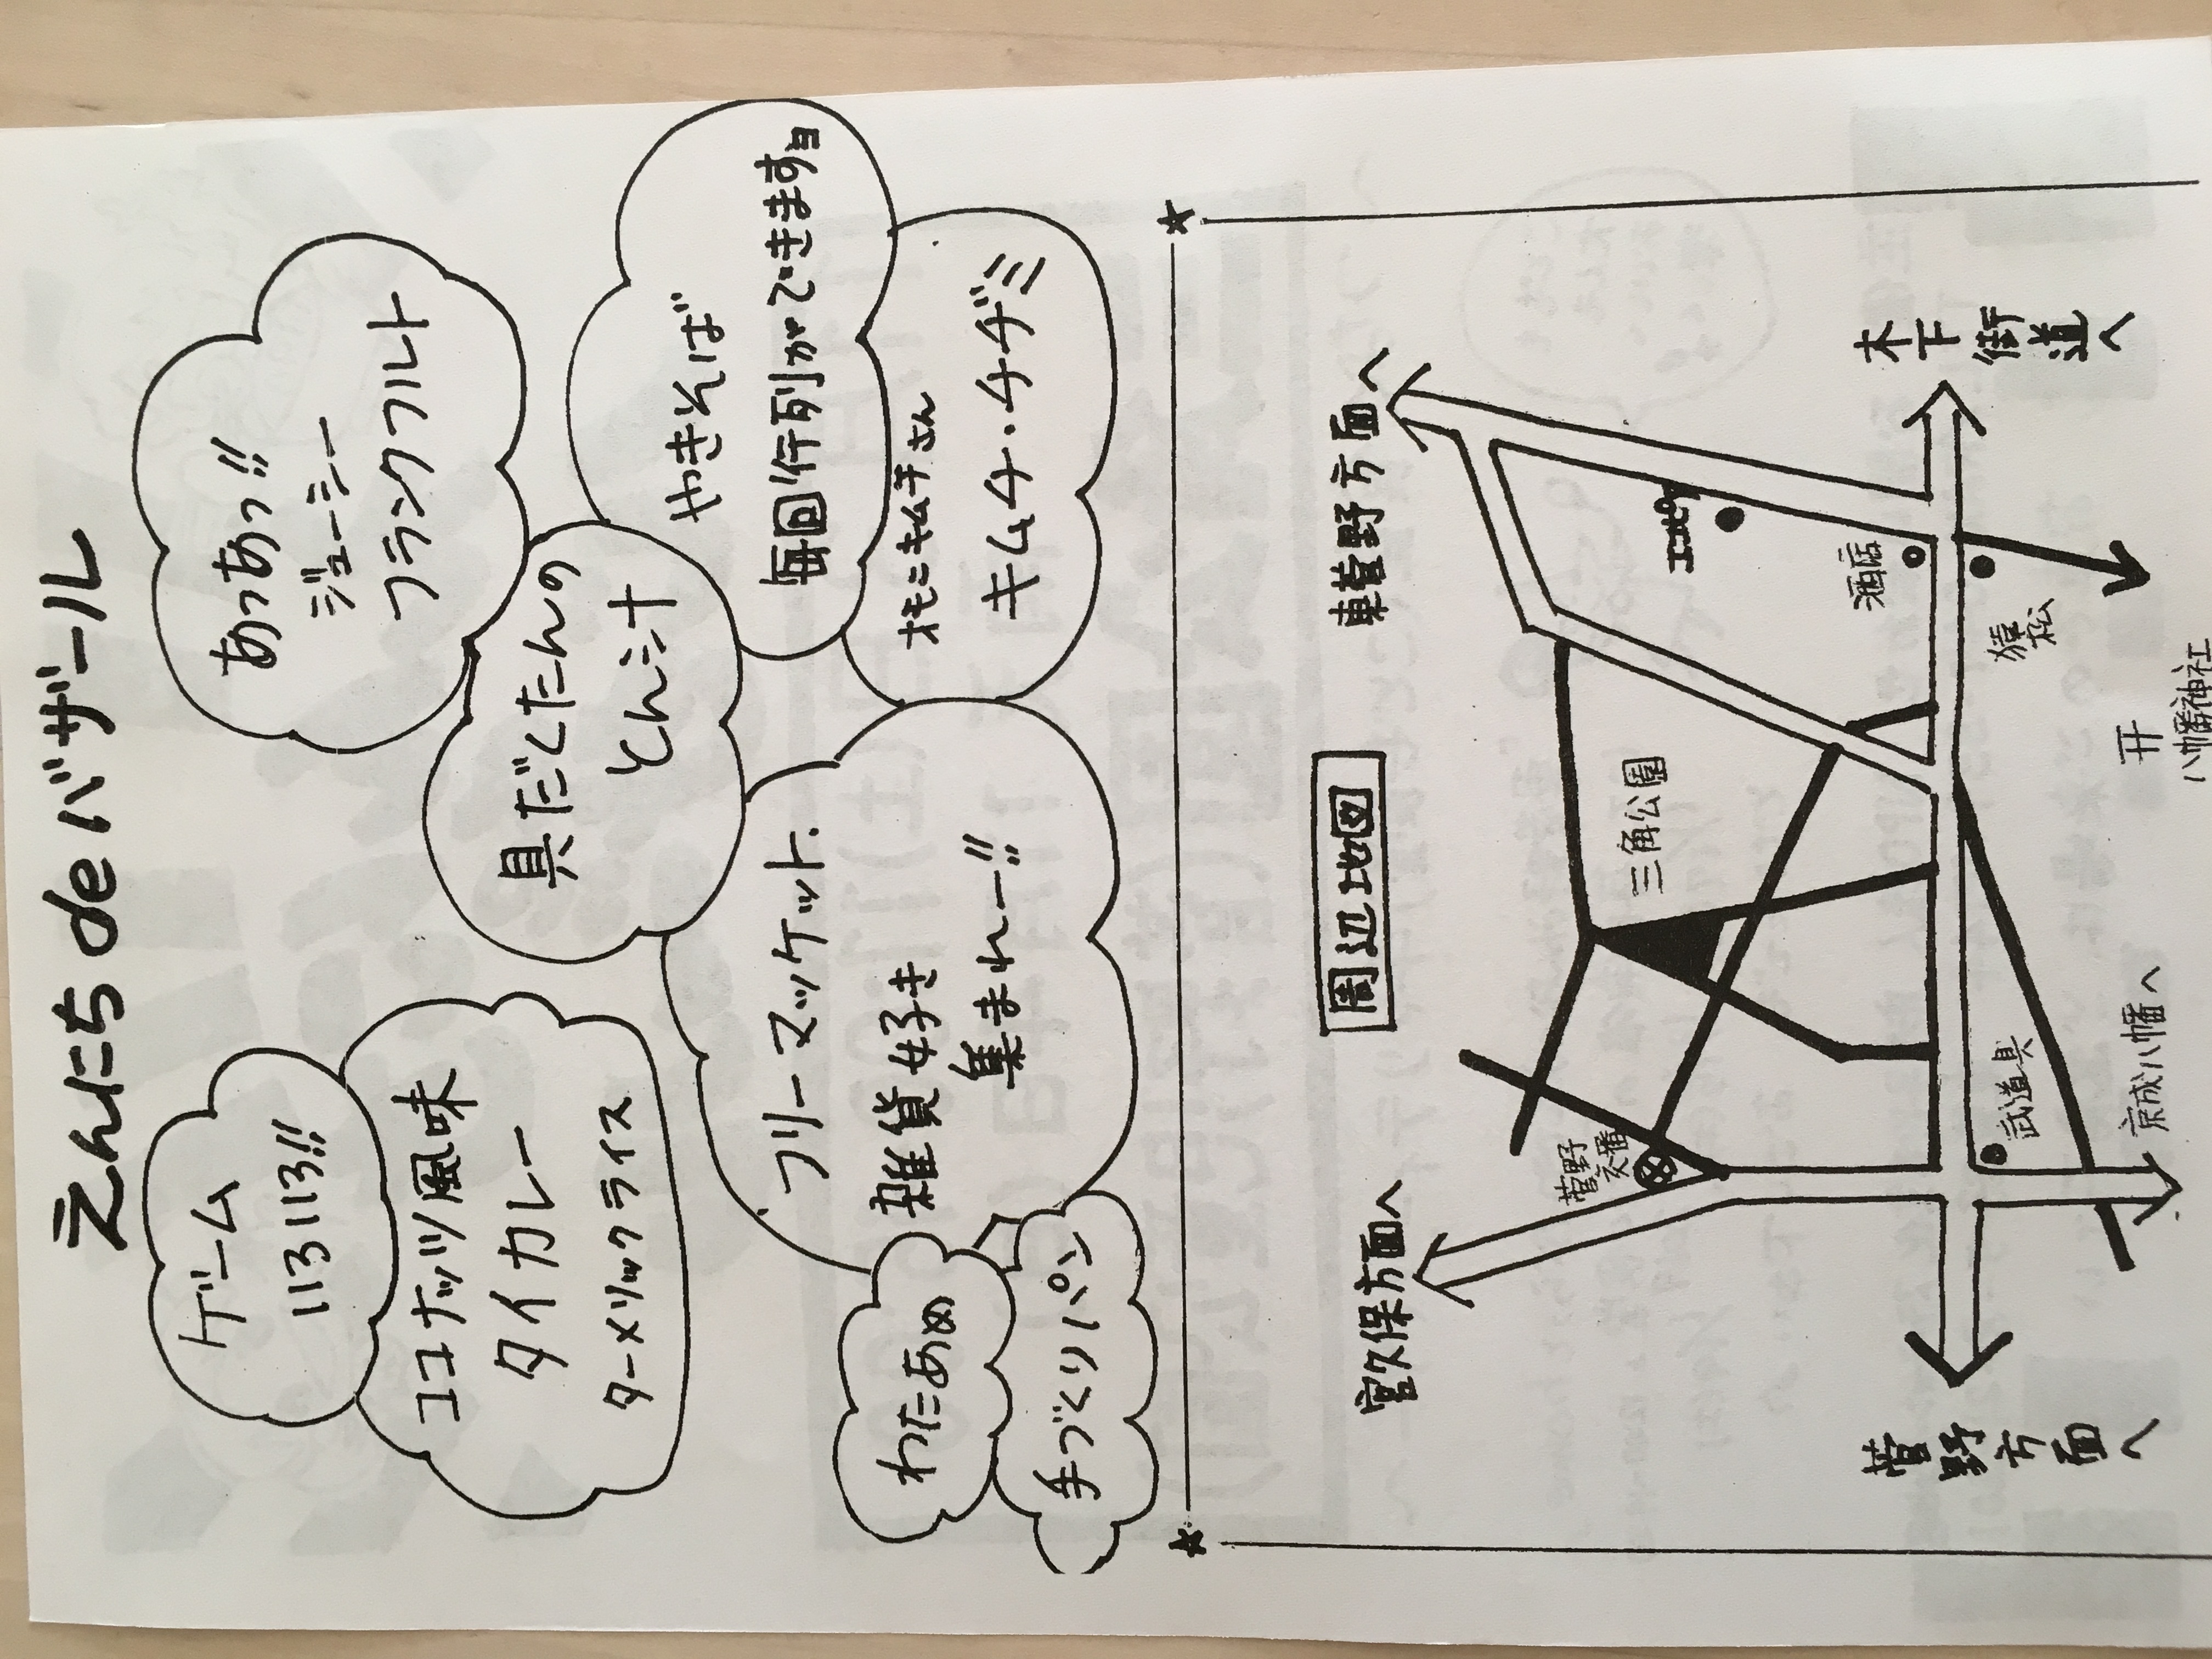 えんにち de バザール
ゲーム
いろいろ!!
あっあっ!!
ジューシー
フランクフルト
ココナッツ風味
タイカレー
ターメリックライス
具だくたんの
とん汁
やきそば
毎回行列ができますョ
フリーマッケット
雑貨好き
集まれー!!
オモニキムチさん
キムチ・チヂミ
わたあめ
手づくりパン
周辺地図
宮久保方面へ
東菅野方面へ
菅野
交番
三角公園
酒店
武道具
猿松
菅野方面へ
木下街道へ
京成八幡へ
八幡神社